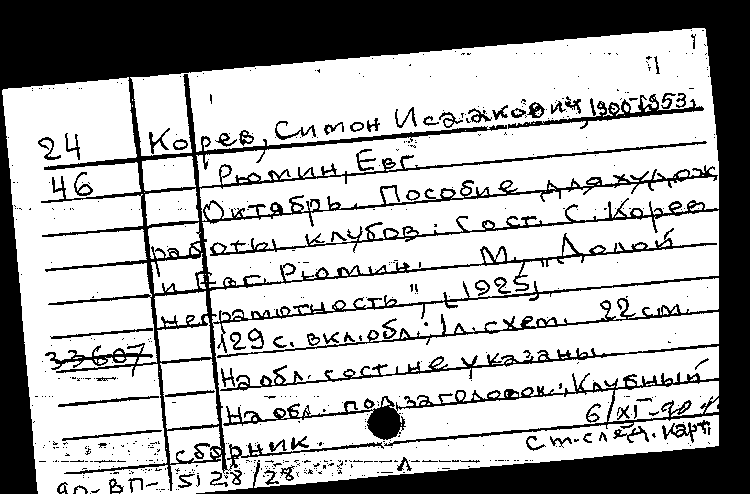 24 Корев, Симон Исаакович, 1900-1953.
46 Рюмин, Евг.
Октябрь. Пособие для худож.
работы клубов. Сост. С. Корев
и Евг. Рюмин. М., "Долой
неграмотность", [1925]
129 с. вкл. обл.; 1 л. схем. 22 см.
33607 На обл. сост. не указаны.
На обл. подзаголовок: Клубный
сборник. 6/XI-90 г.
См. след. карт.
90-ВП- 5128/28